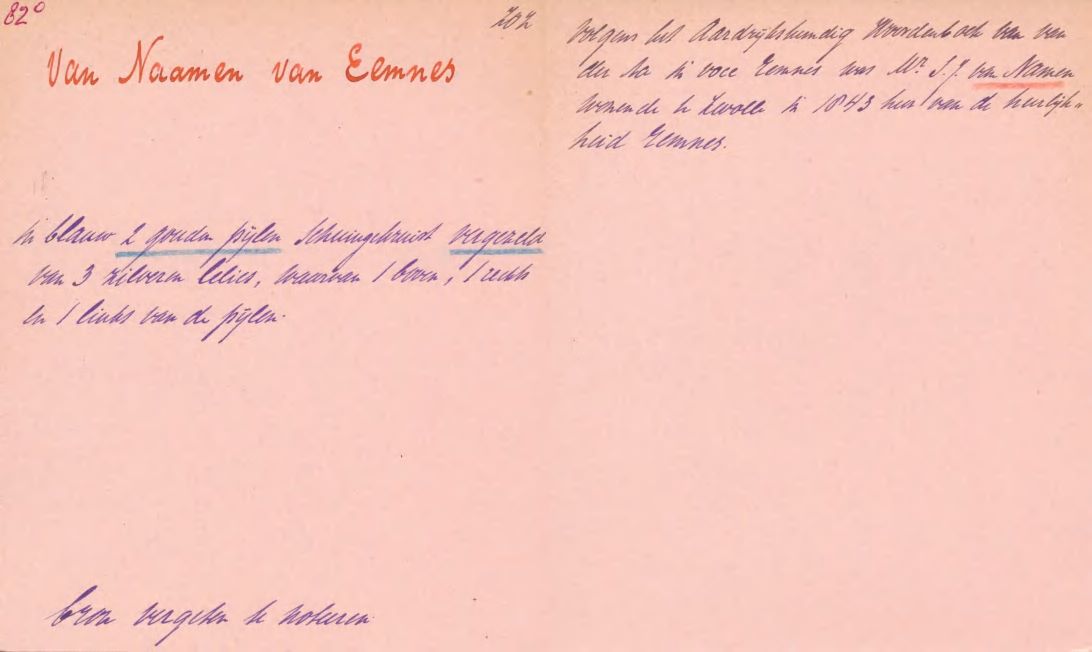 82°
202
Van Naamen van Eemnes
In blauw 2 gouden pijlen schuingekruist vergezeld
van 3 zilveren lelies, waarvan 1 boven, 1 rechts
en 1 links van de pijlen.
Bron vergeten te noteeren
Volgens het Aardrijkskundig Woordenboek van van
der Aa in voce Eemnes was Mr. S. J. van Namen
wonende te Zwolle in 1843 heer van de heerlijk-
heid Eemnes.